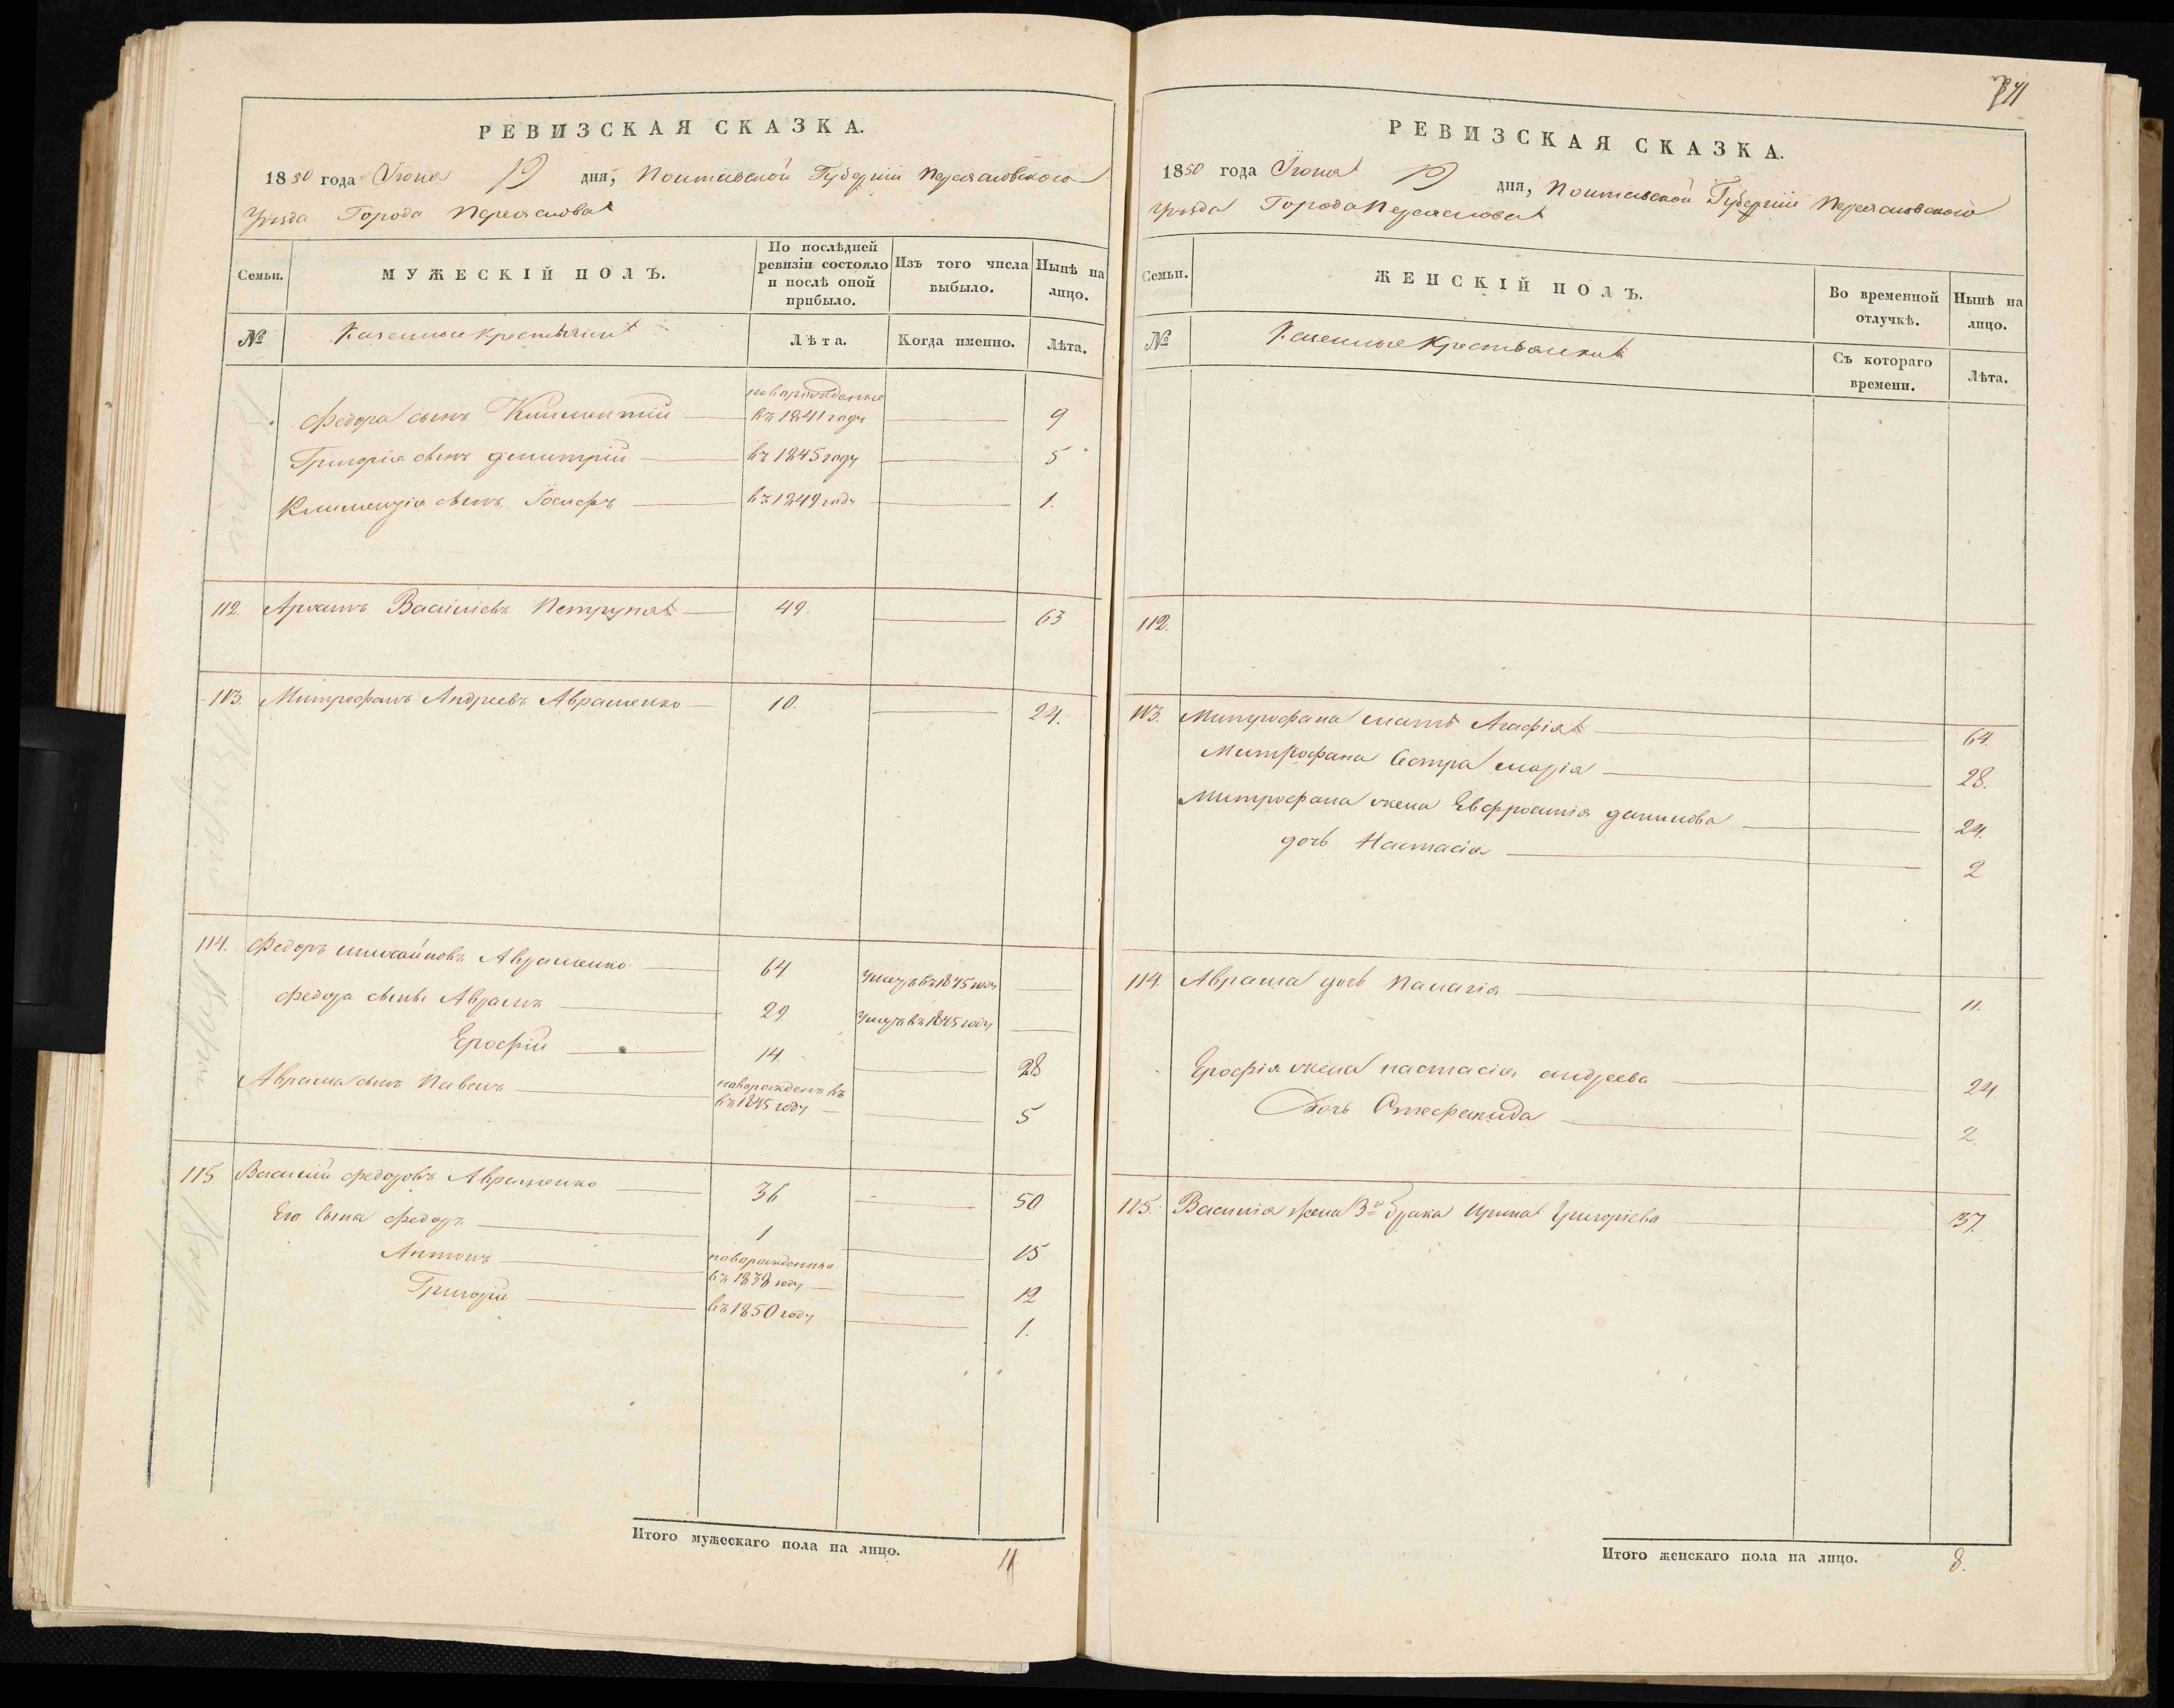 РЕВИЗСКАЯ СКАЗКА.
1850 года Іюня 19 дня, Полтавской Губерніи Переяславского
Уѣзда Города Переяслова
Семьи. МУЖЕСКІЙ ПОЛЪ. По послѣдней ревизіи состояло и послѣ оной прибыло. Изъ того числа выбыло. Нынѣ на лицо.
№ Казенные крестьяне Лѣта. Когда именно. Лѣта.
новорожденные
Федора сынъ Климентій въ 1841 году 9
Григорія сынъ Димитрій въ 1845 году 5
Климентія сынъ Іосифъ въ 1849 году 1.
112. Василіевъ Петруня 49. 63
113. Митрофанъ Андреевъ Авраменко 10. 24.
114. Федоръ Михайловъ Авраменко 64 Умеръ въ 1845 году
Федора сынъ Аврамъ 29 Умеръ въ 1845 году
Ерофій 14. 28
Аврама сынъ Павелъ новорожденъ въ 1845 году 5
115. Василій Федоровъ Авраменко 36 50
Его сына Федоръ 1 15
Антонъ новорожденные въ 1838 году 12
Григорій въ 1850 году 1.
Итого мужескаго пола на лицо. 11
РЕВИЗСКАЯ СКАЗКА.
1850 года Іюня 19 дня, Полтавской Губерніи Переяславского
Уѣзда Города Переяслова
Семьи. ЖЕНСКІЙ ПОЛЪ. Во временной отлучкѣ. Нынѣ на лицо.
№ Казенные крестьянки Съ котораго времени. Лѣта.
112.
113. Митрофана мать Агафія 64.
Митрофана Сестра марія 28.
Митрофана жена Евфросинія данилова 24.
дочь Настасія 2
114. Аврама дочь Палагія 11.
Ерофія жена настасія андреева 24
Дочь Стефанида 2.
115. Василія жена 3го брака Ирина Григоріева 37.
Итого женскаго пола на лицо. 8.